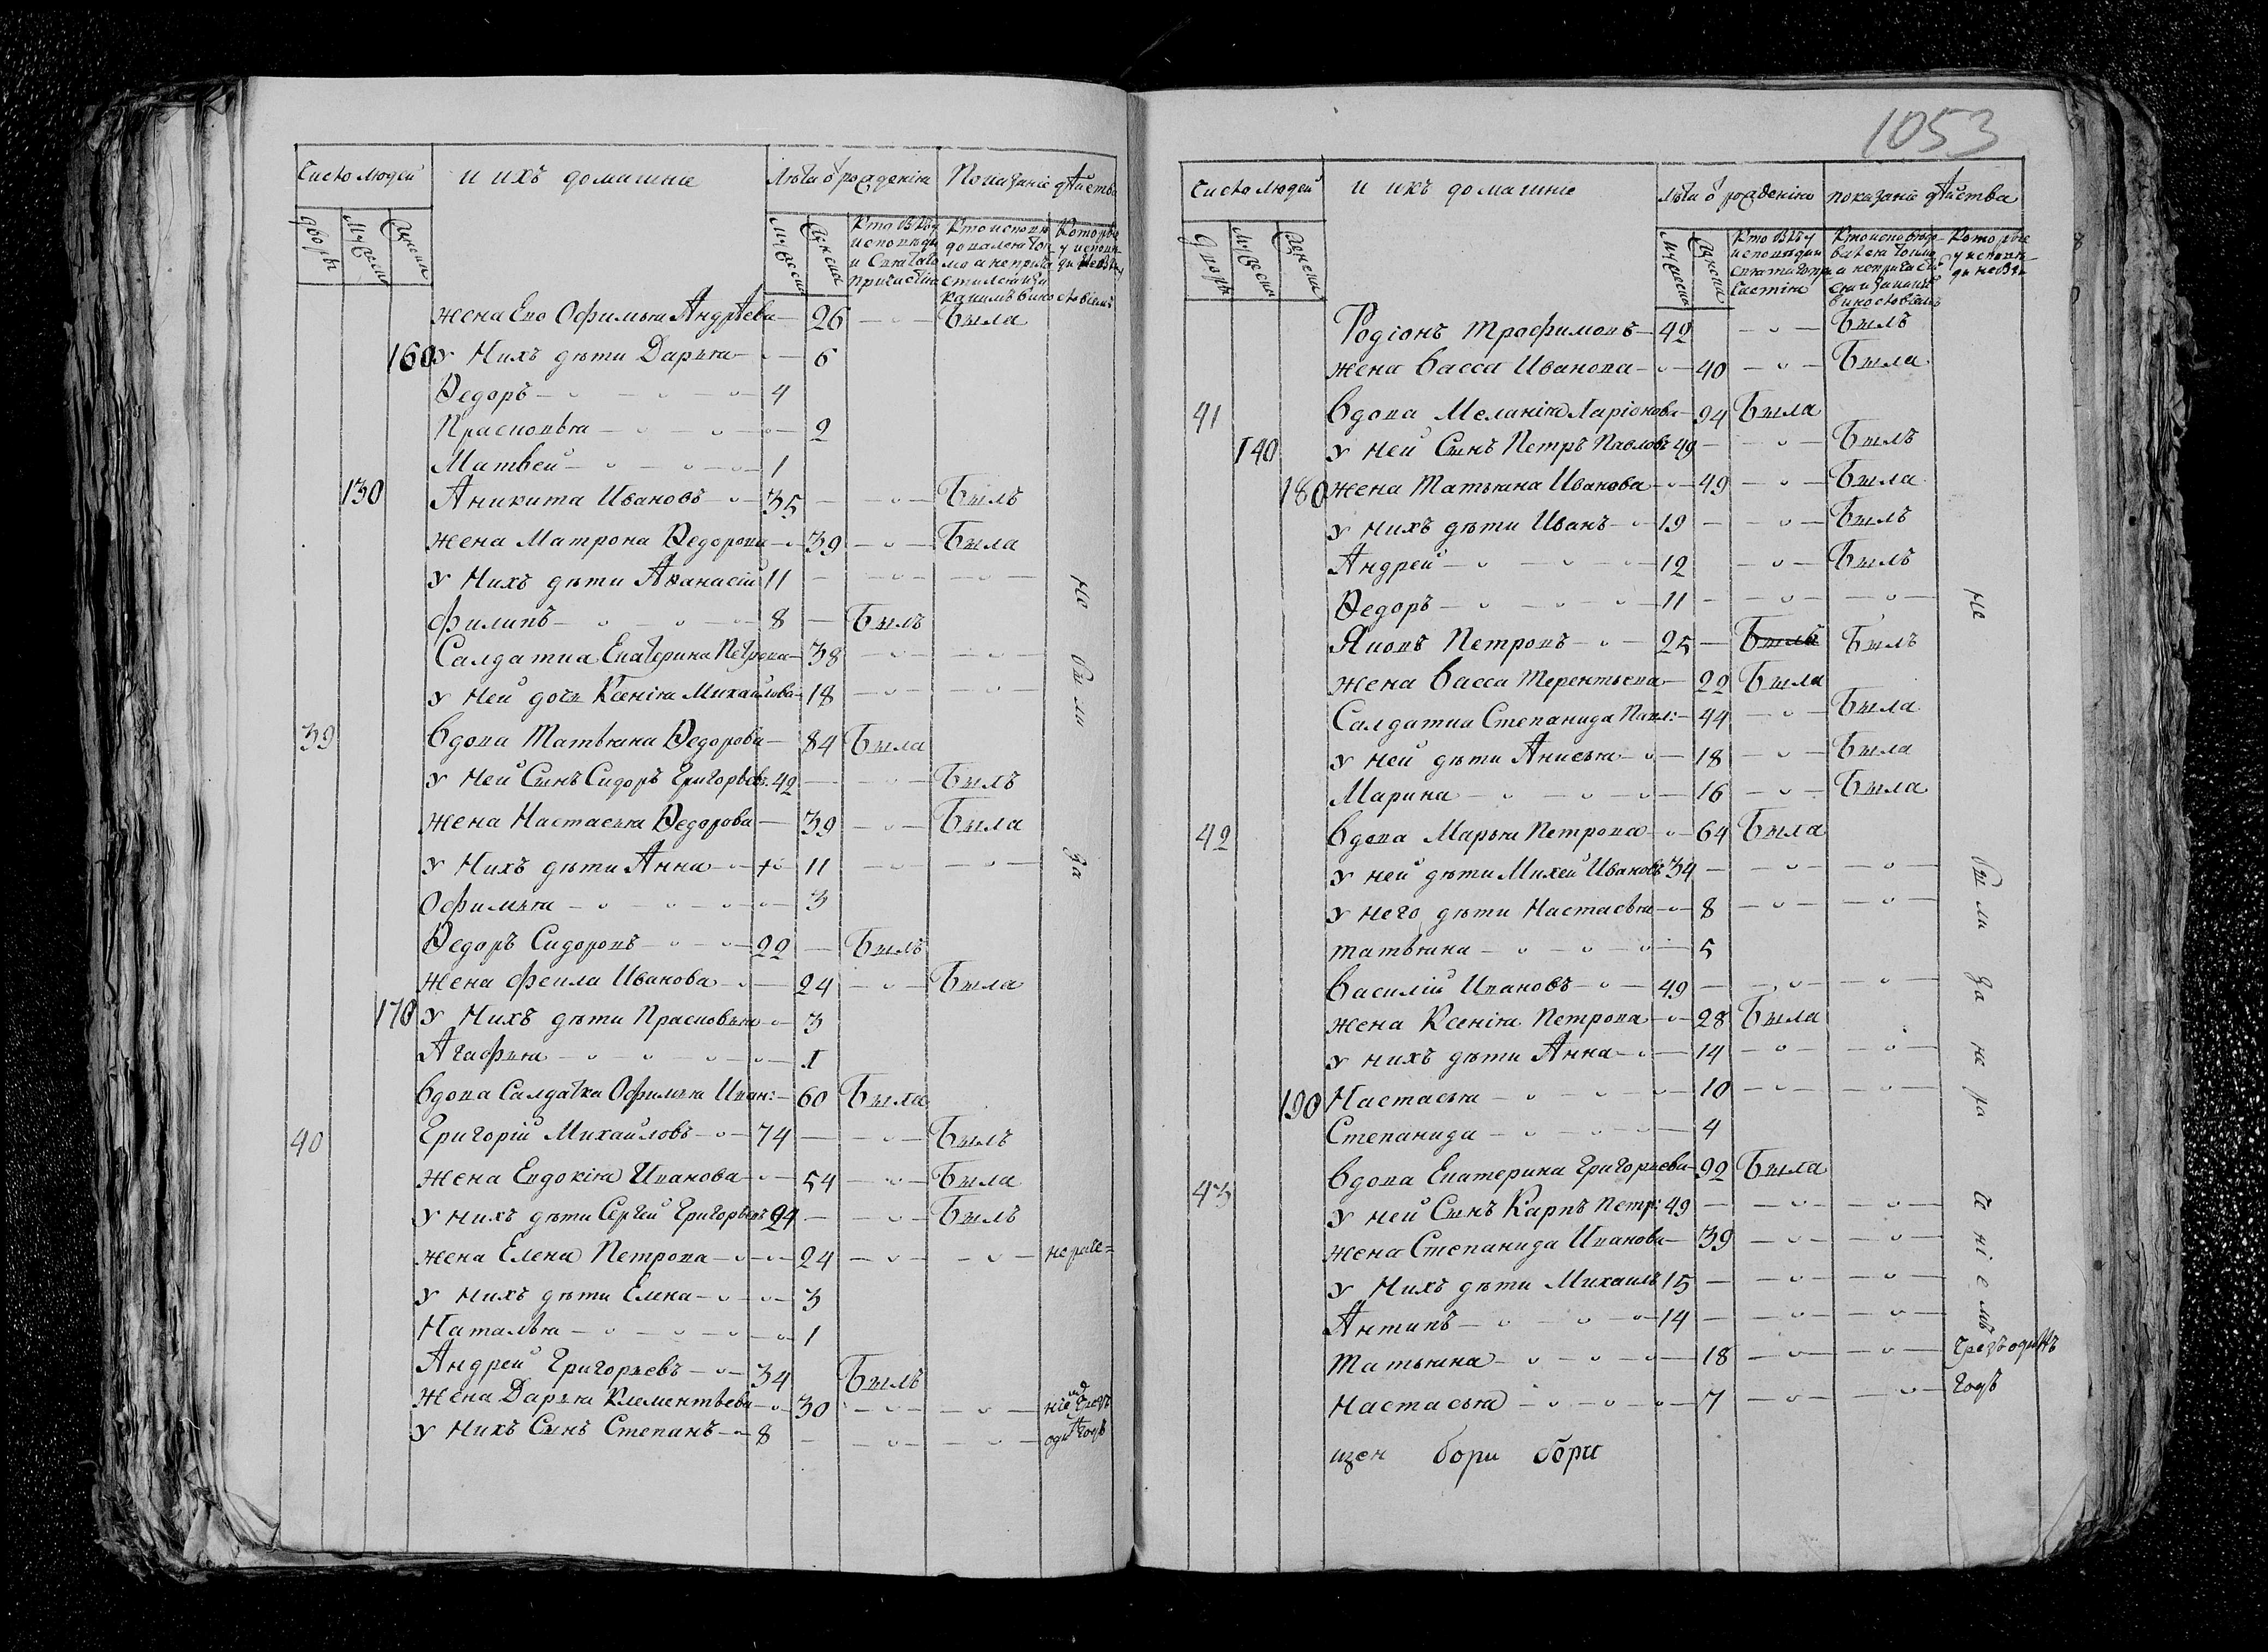 Число людей
и ихъ домашніе
Лѣта ѿ рожденія
Показаніе дѣйства
дворы
Мужеска
Женска
Мужеска
Женска
жена Ево Офимья Андрѣева 26 Была
160 У Нихъ дѣти Дарья 6
Ѳедоръ 4
Прасковья 2
Матвей 1
130 Аникита Ивановъ 35 Былъ
жена Матрона Ѳедорова 39 Была
У Нихъ дѣти Аѳанасій 11
Филипъ 8 Былъ
Салдатка Екатерина Петрова 38
У Ней дочь Ксенія Михайлова 18
39 Вдова Татьяна Ѳедорова 84 Была
У Ней Сынъ Сидоръ Григорьевъ 42 Былъ
Жена Настасья Ѳедорова 39 Была
У Нихъ дѣти Анна 11
Офимья 3
Ѳедоръ Сидоровъ 22 Былъ
Жена Фекла Иванова 24 Была
170 У Нихъ дѣти Прасковья 3
Агафья 1
Вдова Салдатка Офимья Иван: 60 Была
40 Григорій Михайловъ 74 Былъ
Жена Евдокія Иванова 54 Была
У нихъ дѣти Сергей Григорьевъ 24 Былъ
жена Елена Петрова 24 нераче=
У нихъ дѣти Елена 3
Наталья 1
Андрей Григорьевъ 34 Былъ
Жена Дарья Клементьева 30
У Нихъ Сынъ Степанъ 8
Не были за
1053
Число людей
и ихъ домашніе
лѣта ѿ рожденія
показаніе дѣйства
Дворы
Мужеска
Женска
Мужеска
Женска
Родіонъ Трофимовъ 42 Былъ
жена Васса Иванова 40 Была
41 Вдова Меланія Ларіонова 94 Была
140 У ней Сынъ Петръ Павловъ 49 Былъ
180 Жена Татьяна Иванова 49 Была
У нихъ дѣти Иванъ 19 Былъ
Андрей 12 Былъ
Ѳедоръ 11
Яковъ Петровъ 25 Былъ Былъ
жена Васса Терентьева 22 Была
Салдатка Степанида Павл: 44 Была
У ней дѣти Анисья 18 Была
Марина 16 Была
42 Вдова Марья Петрова 64 Была
У ней дѣти Михей Ивановъ 34
У него дѣти Настасья 8
татьяна 5
Василій Ивановъ 49
жена Ксенія Петрова 28 Была
У нихъ дѣти Анна 14
190 Настасья 10
Степанида 4
43 Вдова Екатерина Григорьева 92 Была
У ней Сынъ Карпъ Петр: 49
Жена Степанида Иванова 39
У Нихъ дѣти Михаилъ 15
Антипъ 14
Татьяна 18 Чрезъ одинъ
Настасья 7 Годъ
Не были за нерачениемъ